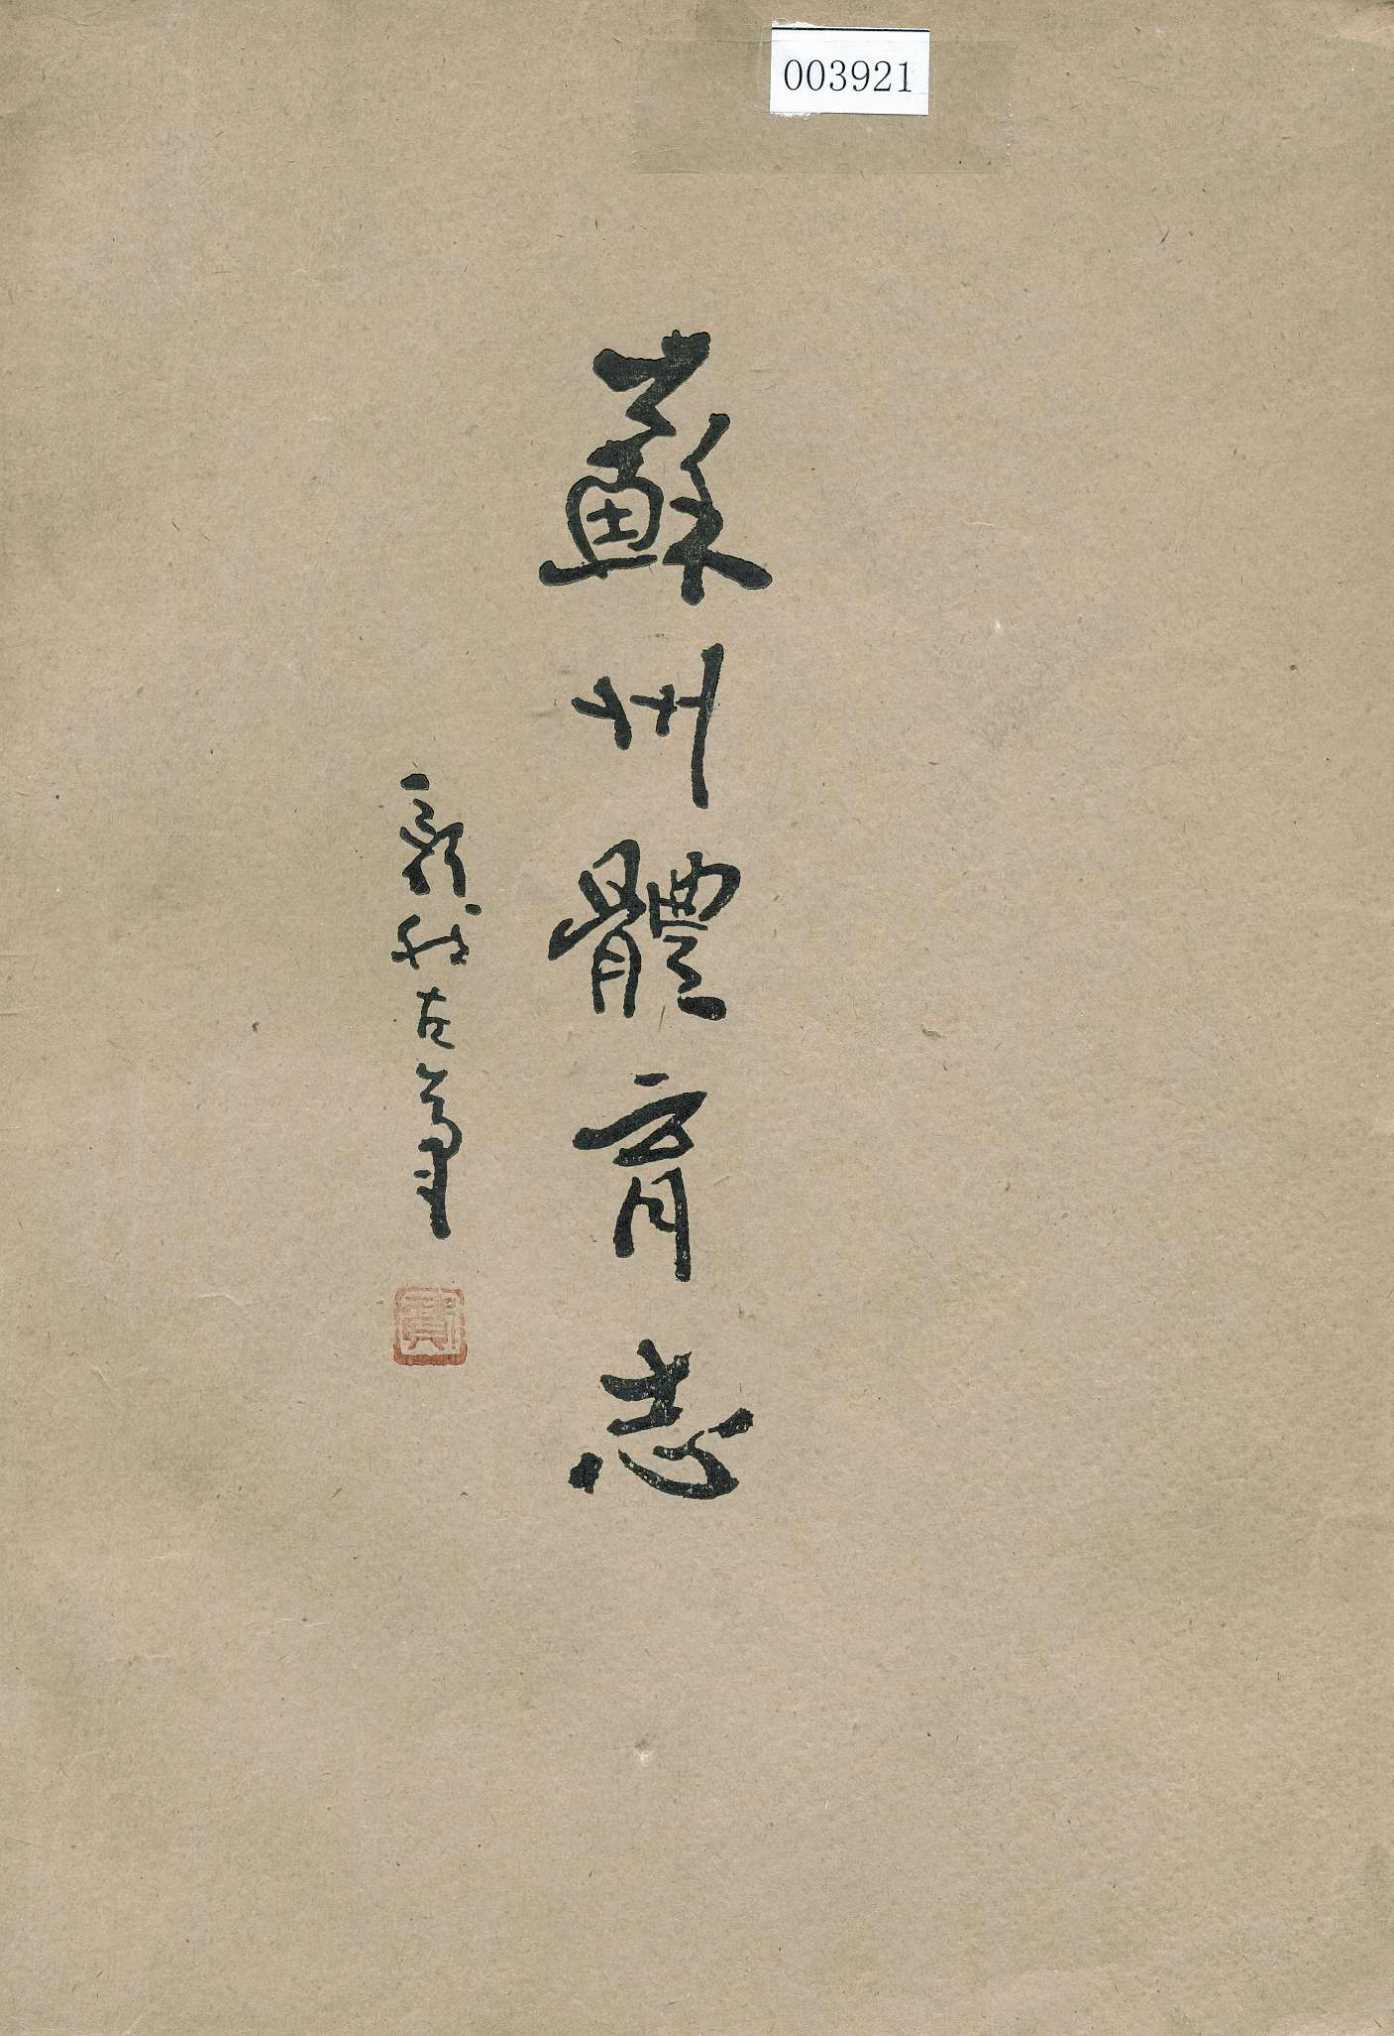 003921
蘇州體育志
新我左筆